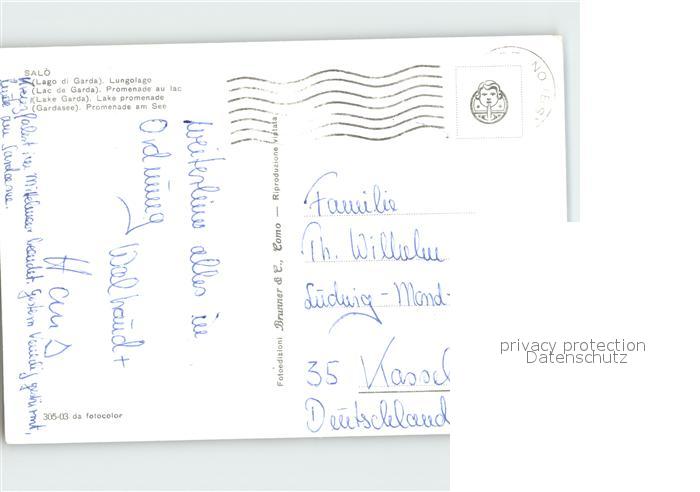 SALÒ
(Lago di Garda). Lungolago
(Lac de Garda). Promenade au lac
(Lake Garda). Lake promenade
(Gardasee). Promenade am See
weiterhin alles in
Ordnung
Waltraud +
Hans
Mittelmeer beendet. Gestern
am Gardasee.
305-03 da fotocolor
Fotoedizioni Brunner & C., Como — Riproduzione vietata
Familie
Th. Wilhelm
Ludwig - Mond-
35 Kassel
Deutschland
privacy protection
Datenschutz